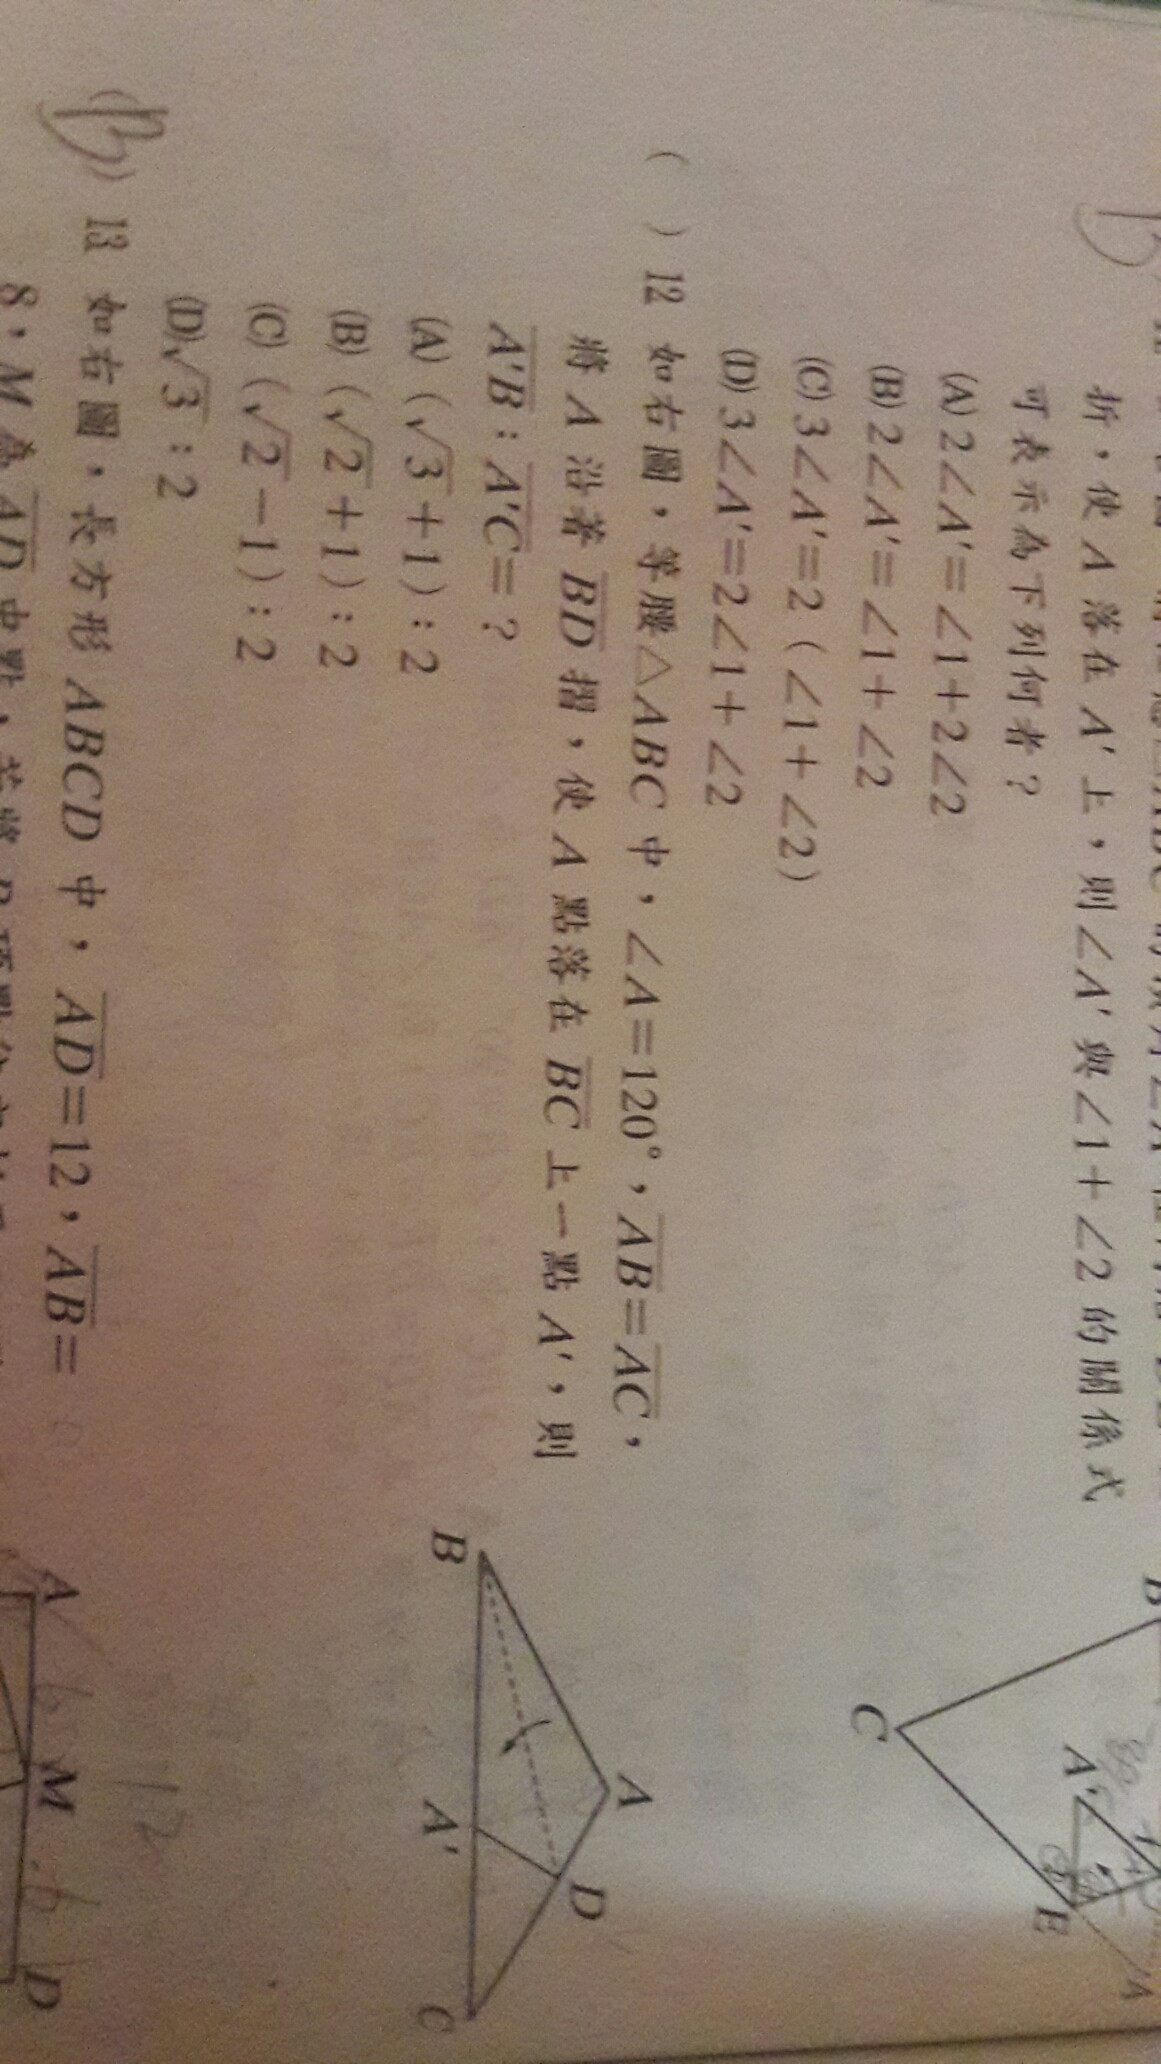 折，使 A 落在 A' 上，則∠A' 與∠1＋∠2 的關係式
可表示為下列何者？
(A) 2∠A'＝∠1＋2∠2
(B) 2∠A'＝∠1＋∠2
(C) 3∠A'＝2（∠1＋∠2）
(D) 3∠A'＝2∠1＋∠2
B
C
A'
E
A
( ) 12 如右圖，等腰△ABC 中，∠A＝120°，AB＝AC，
將 A 沿著 BD 摺，使 A 點落在 BC 上一點 A'，則
A'B：A'C＝？
(A)（√3＋1）：2
(B)（√2＋1）：2
(C)（√2－1）：2
(D) √3：2
A
B
D
A'
C
(B) 13 如右圖，長方形 ABCD 中，AD＝12，AB＝
8，M 為 AD 中點，若將
12
A
6
M
6
D